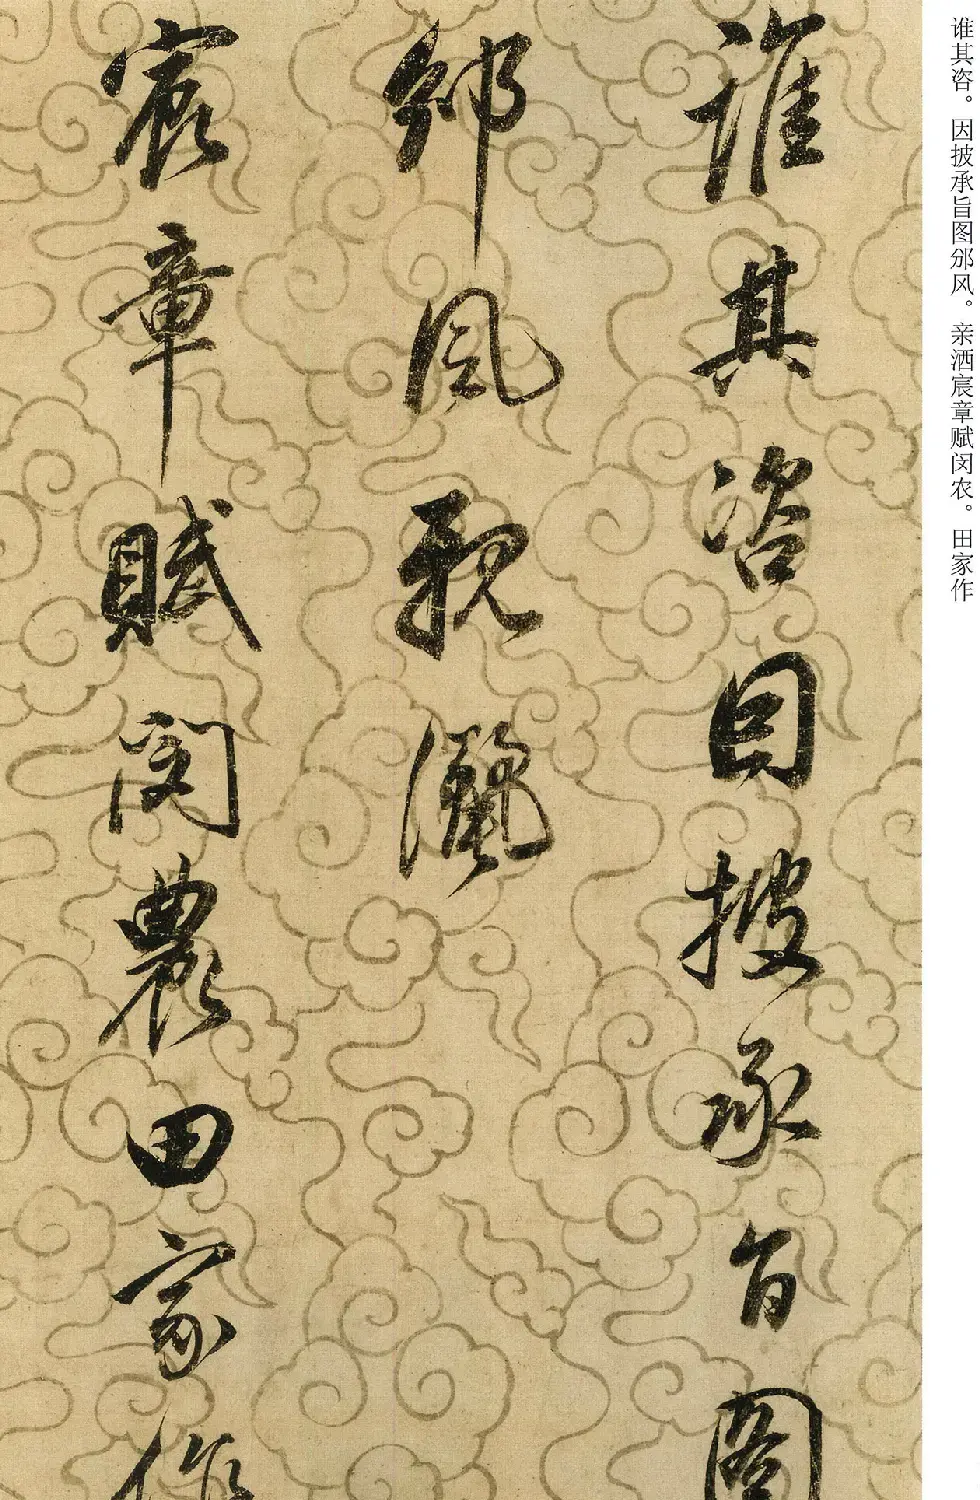 谁其咨。因披承旨图邠风。亲洒宸章赋闵农。田家作
誰其咨因披承旨圖
邠風親灑
宸章賦閔農田家作